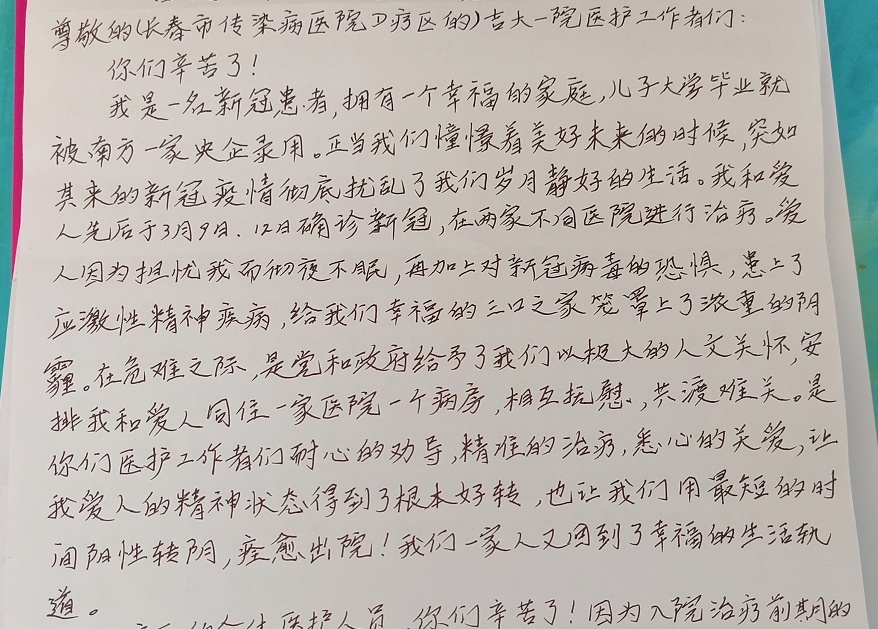 尊敬的(长春市传染病医院D疗区的)吉大一院医护工作者们:
你们辛苦了!
我是一名新冠患者,拥有一个幸福的家庭,儿子大学毕业就
被南方一家央企录用。正当我们憧憬着美好未来的时候,突如
其来的新冠疫情彻底扰乱了我们岁月静好的生活。我和爱
人先后于3月9日、12日确诊新冠,在两家不同医院进行治疗。爱
人因为担忧我而彻夜不眠,再加上对新冠病毒的恐惧,患上了
应激性精神疾病,给我们幸福的三口之家笼罩上了浓重的阴
霾。在危难之际,是党和政府给予了我们以极大的人文关怀,安
排我和爱人同住一家医院一个病房,相互抚慰,共渡难关。是
你们医护工作者们耐心的劝导,精准的治疗,悉心的关爱,让
我爱人的精神状态得到了根本好转,也让我们用最短的时
间阳性转阴,痊愈出院!我们一家人又回到了幸福的生活轨
道。
医护人员,你们辛苦了!因为入院治疗前期的